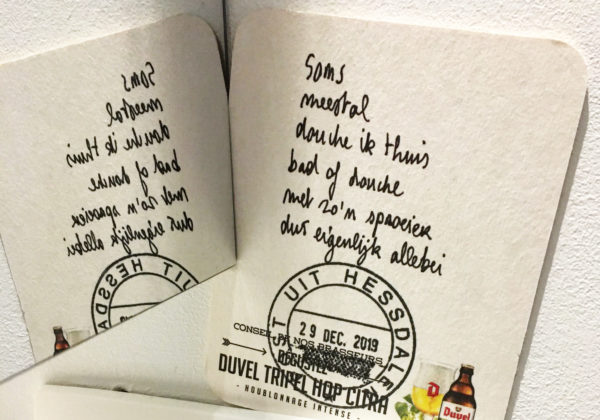 Soms
meestal
douche ik thuis
bad of douche
met zo'n sproeier
dus eigenlijk allebei
ST UIT HESSDALE
29 DEC. 2019
CONSEIL DE NOS BRASSEURS
DÉGUSTEZ
DUVEL TRIPEL HOP CITRA
- HOUBLONNAGE INTENSE -
D
Duvel